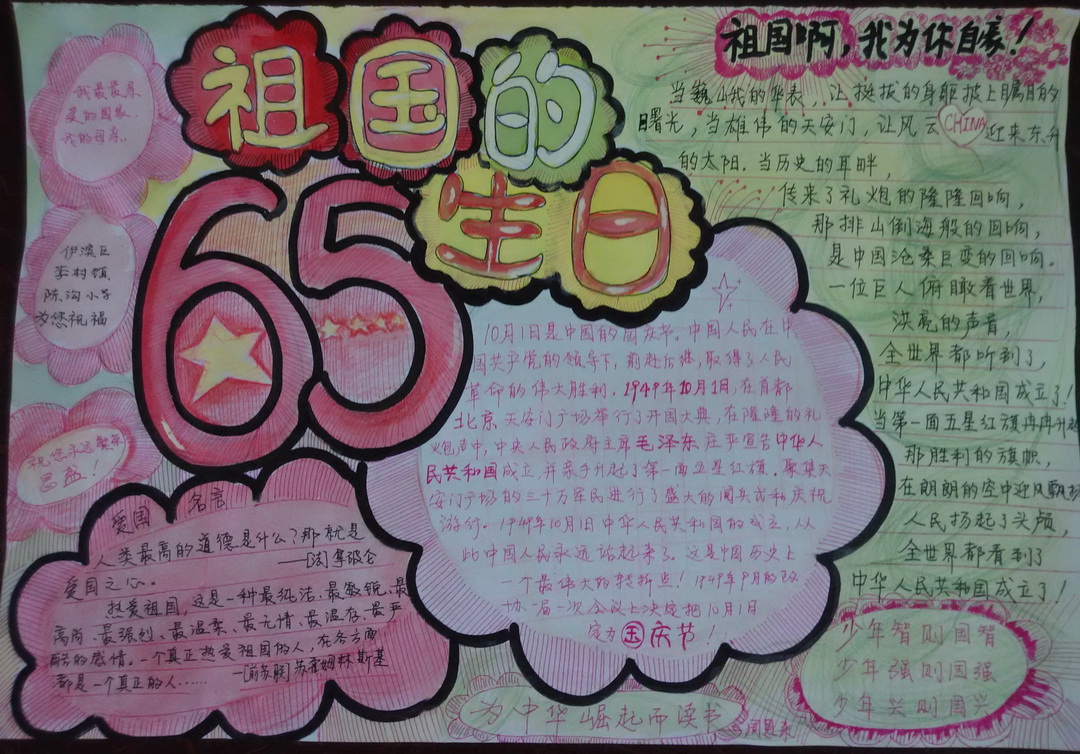 祖国的
65
生日
我最最亲
爱的国家
我的母亲
伊滨区
李村镇
陈沟小学
为您祝福
祝您永远繁荣
昌盛！
爱国 名言
人类最高的道德是什么？那就是
爱国之心。 ——[法]拿破仑
热爱祖国，这是一种最纯洁、最敏锐、最
高尚、最强烈、最温柔、最无情、最温存、最严
酷的感情。一个真正热爱祖国的人，在各方面
都是一个真正的人…… —[前苏联]苏霍姆林斯基
10月1日是中国的国庆节。中国人民在中
国共产党的领导下，前赴后继，取得了人民
革命的伟大胜利．1949年10月1日，在首都
北京天安门广场举行了开国大典，在隆隆的礼
炮声中，中央人民政府主席毛泽东庄严宣告中华人
民共和国成立，并亲手升起了第一面五星红旗．聚集天
安门广场的三十万军民进行了盛大的阅兵式和庆祝
游行．1949年10月1日中华人民共和国的成立，从
此中国人民永远站起来了。这是中国历史上
一个最伟大的转折点！1949年9月的政
协一届一次会议上决定把10月1日
定为国庆节！
祖国啊，我为你自豪！
当巍峨的华表，让挺拔的身躯披上瞩目的
曙光，当雄伟的天安门，让风云 CHINA 迎来东升
的太阳．当历史的耳畔，
传来了礼炮的隆隆回响，
那排山倒海般的回响，
是中国沧桑巨变的回响。
一位巨人俯瞰着世界，
洪亮的声音，
全世界都听到了，
中华人民共和国成立了！
当第一面五星红旗冉冉升起
那胜利的旗帜，
在朗朗的空中迎风飘扬
人民扬起了头颅，
全世界都看到了
中华人民共和国成立了！
少年智则国智
少年强则国强
少年兴则国兴
为中华崛起而读书